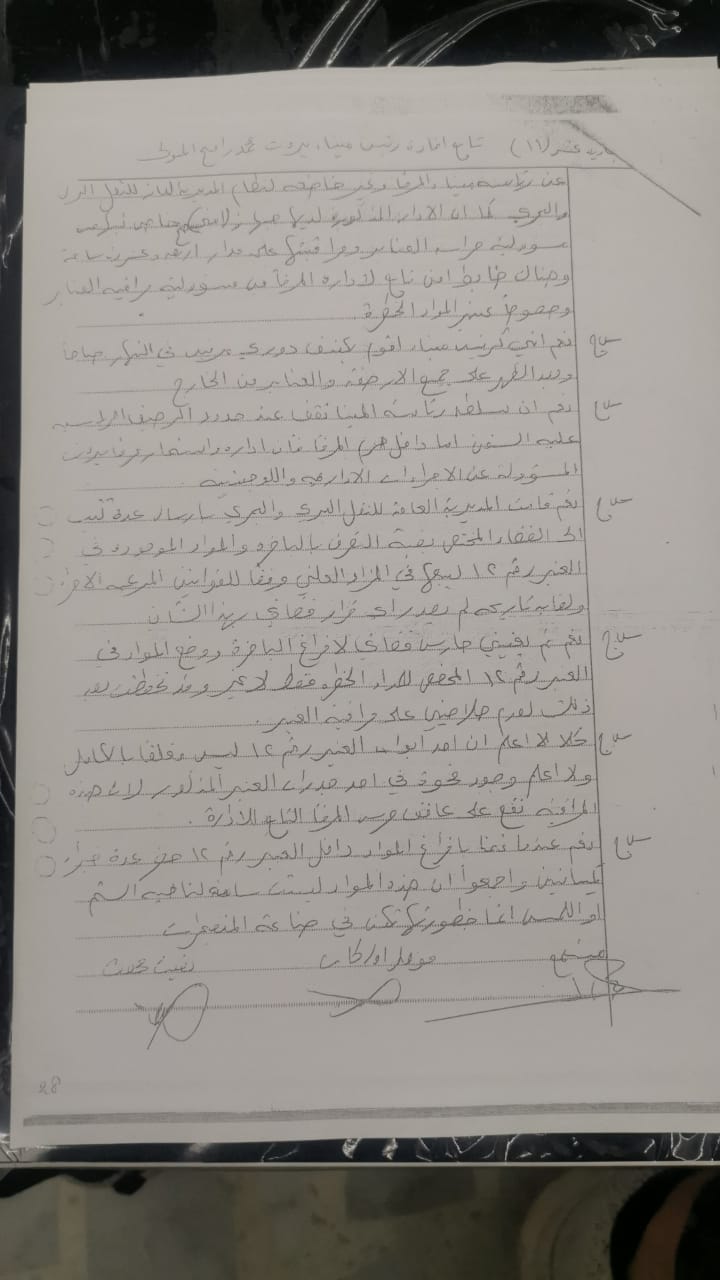 (١١) تابع افادة رئيس ميناء بيروت محمد المولى
عن رئاسة ميناء والمرفأ وغير خاضعة لنظام المديرية العامة للنقل البري
والبحري كما ان الادارة المذكورة لديها حراس خاص
مسؤولية حراسة العنابر ومراقبتها على مدار اربعة وعشرين ساعة
وهناك ضابط امن تابع لادارة المرفأ من مسؤولية مراقبة العنابر
وخصوصاً عنبر المواد الخطرة.
ج نعم انني كرئيس ميناء اقوم بكشف دوري مرتين في النهار صباحاً
وبعد الظهر على جميع الارصفة والعنابر من الخارج
ج نعم ان سلطة رئاسة الميناء تقف عند حدود الرصيف الراسية
عليه السفن اما داخل حرم المرفأ فان ادارة واستثمار مرفأ بيروت
المسؤولة عن الاجراءات الادارية واللوجستية
ج نعم قامت المديرية العامة للنقل البري والبحري بارسال عدة كتب
الى القضاء المختص بغية التصرف بالباخرة والمواد الموجودة في
العنبر رقم ١٢ لبيعها في المزاد العلني وفقاً للقوانين المرعية الاجراء
ولغاية تاريخه لم يصدر اي قرار قضائي بهذا الشأن
ج نعم تم تعييني حارس قضائي لافراغ الباخرة ووضع المواد في
العنبر رقم ١٢ المخصص للمواد الخطرة فقط لا غير وقد تحفظت بعد
ذلك لعدم صلاحيتي على مراقبة العنبر.
ج كلا لا اعلم ان احد ابواب العنبر رقم ١٢ ليس مقفلاً بالكامل
ولا اعلم وجود فجوة في احد جدران العنبر المذكور لان هذه
المراقبة تقع على عاتق حرس المرفأ التابع للادارة.
ج نعم عندما قمنا بافراغ المواد داخل العنبر رقم ١٢ حضر عدة خبراء
كيميائيين واجمعوا ان هذه المواد ليست سامة لناحية الشم
او اللمس انما خطورتها تكمن في صناعة المتفجرات
مستمع
معاون اول كاتب
نقيب محقق
28